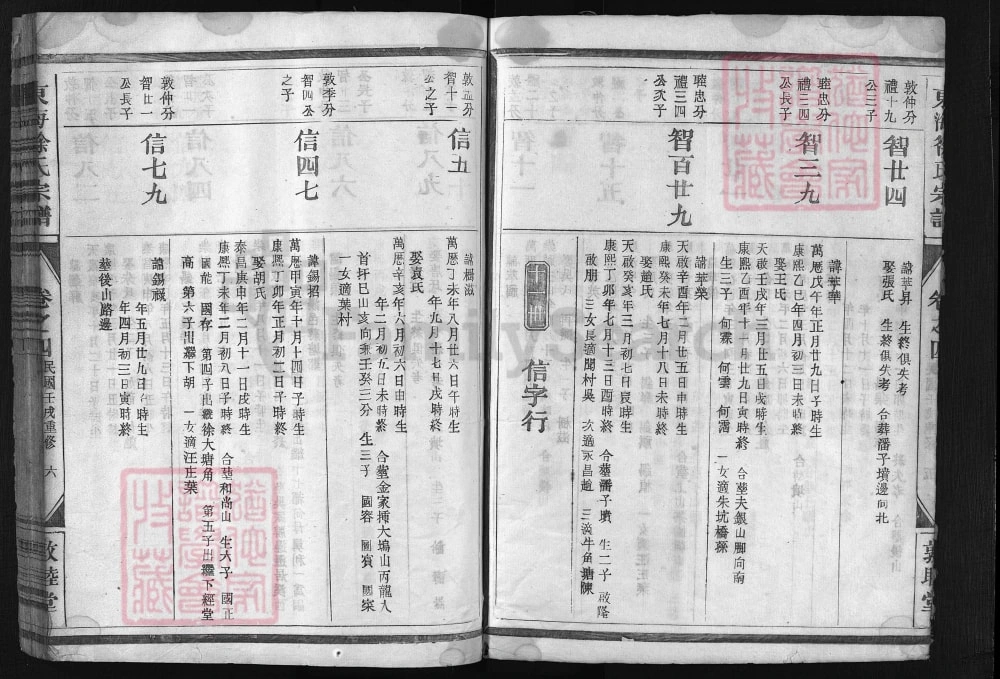 敦仲分
禮十九
公三子
智廿四
諱華昇　生終俱失考
娶張氏　生終俱失考　合葬潘子墳邊向北
瑾忠分
禮三四
公長子
智三九
諱華華
萬曆戊午年正月廿九日子時生
康熙乙巳年四月初三日未時終
娶王氏
天啟壬戌年三月廿五日戌時生
康熙乙酉年十一月廿九日寅時終　合塟夫銀山脚向南
生三子　何霖　何雲　何霑　一女適朱坑橋孫
瑾忠分
禮三四
公次子
智百廿九
諱華榮
天啟辛酉年二月廿五日申時生
康熙癸未年七月十八日未時終
娶趙氏
天啟癸亥年三月初七日辰時生
康熙丁卯年七月十三日酉時終　合塟潘子墳　生二子　啟隆
啟朋　三女長適閣村吳　次適永昌趙　三適牛角塘陳
十一世　信字行
敦孟分
智十一
公之子
信五
諱楠滋
萬曆丁未年八月廿六日午時生
年九月十七日戌時終
娶袁氏
萬曆辛亥年六月初六日申時生
年二月初五日未時終　合塟金家搏大塢山丙龍入
首扦巳山亥向兼壬癸三分　生三子　國容　國賓　國寀
一女適葉村
敦季分
智四公
之子
信四七
諱錫招
萬曆甲寅年十月十四日子時生
康熙丁卯年正月初二日子時終
娶胡氏
泰昌庚申年二月十一日戌時生
康熙丁未年二月初八日子時終　合塟和尚山　生六子　國正
國能　國存　第四子出繼徐大塘角　第五子出繼下經堂
高　第六子出繼下胡　一女適汪庄葉
敦仲分
智廿一
公長子
信七九
諱錫禄
年五月廿九日午時生
年四月初三日寅時終
塟後山路邊
東海徐氏宗譜
卷之四
民國壬戌重修
六
敦睦堂